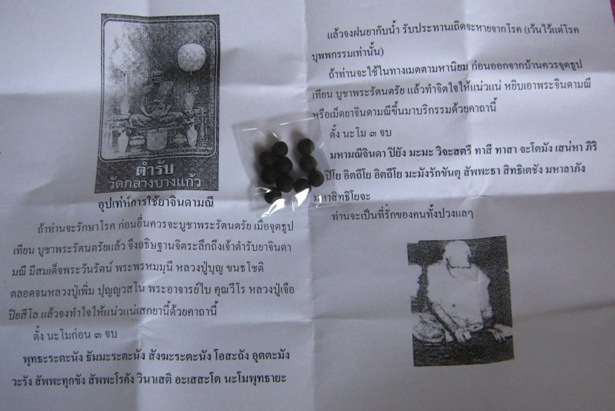 ตำรับ
วัดกลางบางแก้ว
อุปเท่ห์การใช้ยาจินดามณี
ถ้าท่านจะรักษาโรค ก่อนอื่นควรจะบูชาพระรัตนตรัย เมื่อจุดธูป
เทียน บูชาพระรัตนตรัยแล้ว จึงอธิษฐานจิตระลึกถึงเจ้าตำรับยาจินดา
มณี มีสมเด็จพระวันรัตน์ พระพรหมมุนี หลวงปู่บุญ ขนธโชติ
ตลอดจนหลวงปู่เพิ่ม ปุญญวสโน พระอาจารย์ใบ คุณวีโร หลวงปู่เจือ
ปิยสีโล แล้วจงทำใจให้แน่วแน่เสกยานี้ด้วยคาถานี้
ตั้ง นะโมก่อน ๓ จบ
พุทธะระตะนัง ธัมมะระตะนัง สังฆะระตะนัง โอสะถัง อุตตะมัง
วะรัง สัพพะทุกขัง สัพพะโรคัง วินาเสติ อะเสสะโต นะโมพุทธายะ
แล้วจงฝนยากับน้ำ รับประทานเถิดจะหายจากโรค (เว้นไว้แต่โรค
บุพพกรรมเท่านั้น)
ถ้าท่านจะใช้ในทางเมตตามหานิยม ก่อนออกจากบ้านควรจุดธูป
เทียน บูชาพระรัตนตรัย แล้วทำจิตใจให้แน่วแน่ หยิบเอาพระจินดามณี
หรือเม็ดยาจินดามณีขึ้นมาบริกรรมด้วยคาถานี้
ตั้ง นะโม ๓ จบ
มหามณีจินดา ปิยัง มะมะ วิจะสตรี ทาสี ทาสา จะโตมัง เสน่หา ภิริ
ปิโย อิตถีโย อิตถีโย มะมังรักขันตุ สัพพะธา สิทธิเตชัง มหาลาภัง
มหาสิทธิโยจะ
ท่านจะเป็นที่รักของคนทั้งปวงแลๆ